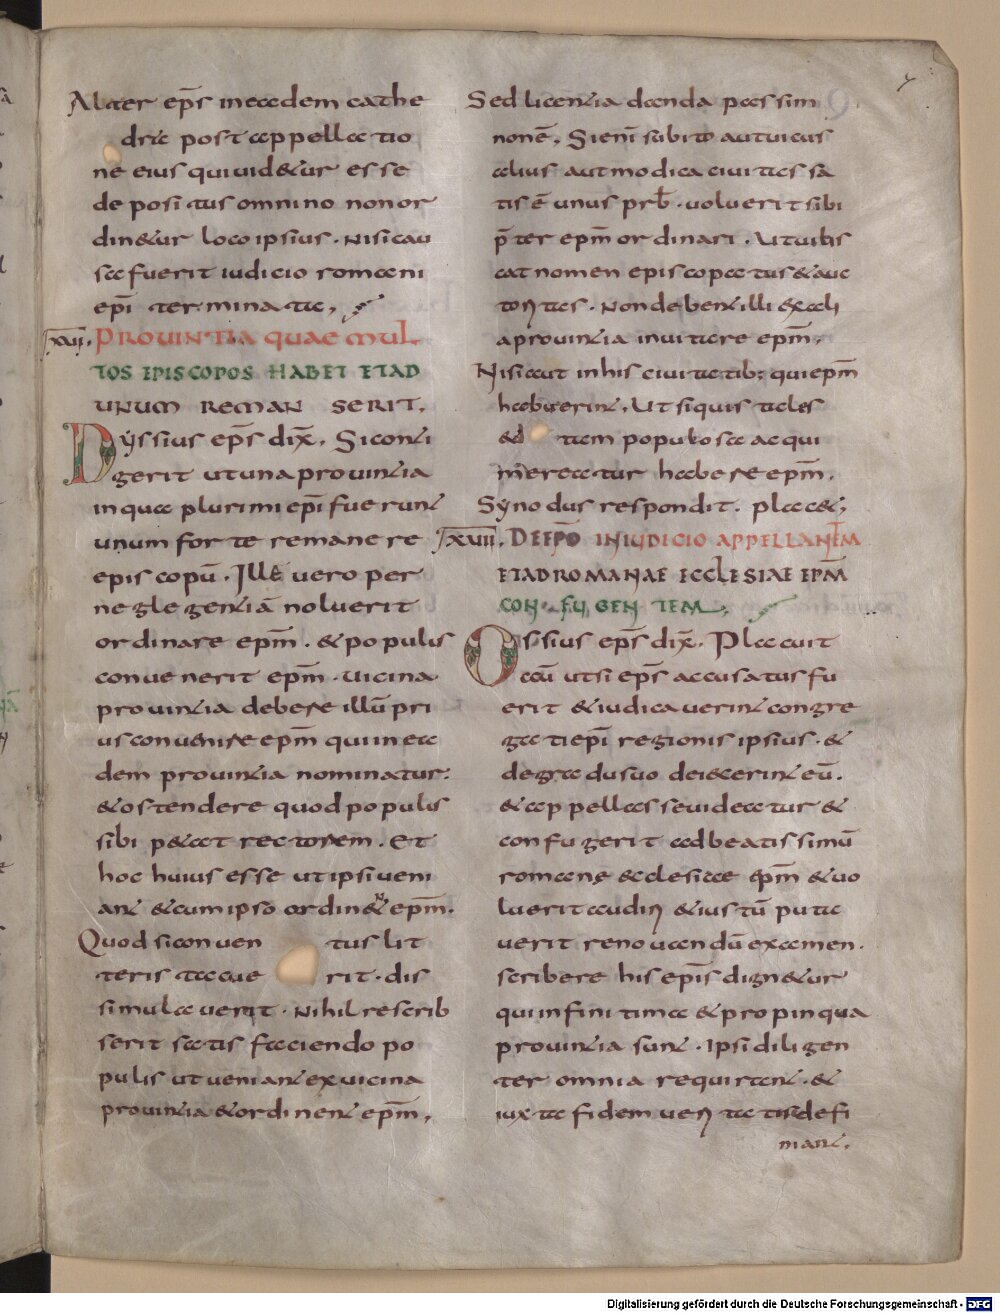 Alter ep̄s in eadem cathe
dra post appellatio
nē eius qui uid&ur esse
depositus omnino non or
din&ur loco ipsius. Nisi cau
sa fuerit iudicio romani
ep̄i terminata;
XVI. PROUINTIA QUAE MUL
TOS EPISCOPOS HABET ET AD
UNUM REMANSERIT.
Ossius ep̄s dix̄. Si conti
gerit ut una prouintia
in qua plurimi ep̄i fuerunt
unum forte remanere
episcopū. Ille uero per
neglegentiā noluerit
ordinare ep̄m. & populus
conuenerit ep̄m. uicina
prouintia debere illū pri
us conuenire ep̄m qui in ea
dem prouintia nominatur.
& ostendere quod populus
sibi p&at rectorem. Et
hoc huius esse ut ipsi ueni
ant & cum ipso ordin&ͫ ep̄m.
Quod si conuentus lit
teris tacuerit. dis
simulauerit. Nihil rescrib
serit satis faciendo po
pulis ut ueniant ex uicina
prouintia & ordinent ep̄m;
Sed licentia danda passim
non ē. Si enī subito aut uicus
alius aut modica ciuitas sa
tis ē unus prb̄. uoluerit sibi
p̄ter ep̄m ordinari. Ut uilis
cat nomen episcopatus & auc
toritas. Non debent illi ex ali
a prouintia inuitare ep̄m;
Nisi aut in his ciuitatib; qui ep̄m
habuerint. Ut si quis tales
& tam populosa ac qui
mereatur habere ep̄m.
Synodus respondit. plac&;
XVII. DE EP̄O IN IUDICIO APPELLANTEM
ET AD ROMANAE ECCLESIAE EP̄M
CONFUGENTEM;
Ossius ep̄s dix̄. Placuit
autē ut si ep̄s accusatus fu
erit & iudicauerint congre
gati ep̄i regionis ipsius. &
de gradu suo deiecerint eū.
& appellasse uideatur &
confugerit ad beatissimū
romane ecclesiae ep̄m & uo
luerit audiri & iustū puta
uerit renouandū examen.
scribere his ep̄is dign&ur
qui in finitima & propinqua
prouintia sunt. Ipsi diligen
ter omnia requirant. &
iuxta fidem ueritatis defi
niant.
Digitalisierung gefördert durch die Deutsche Forschungsgemeinschaft - DFG